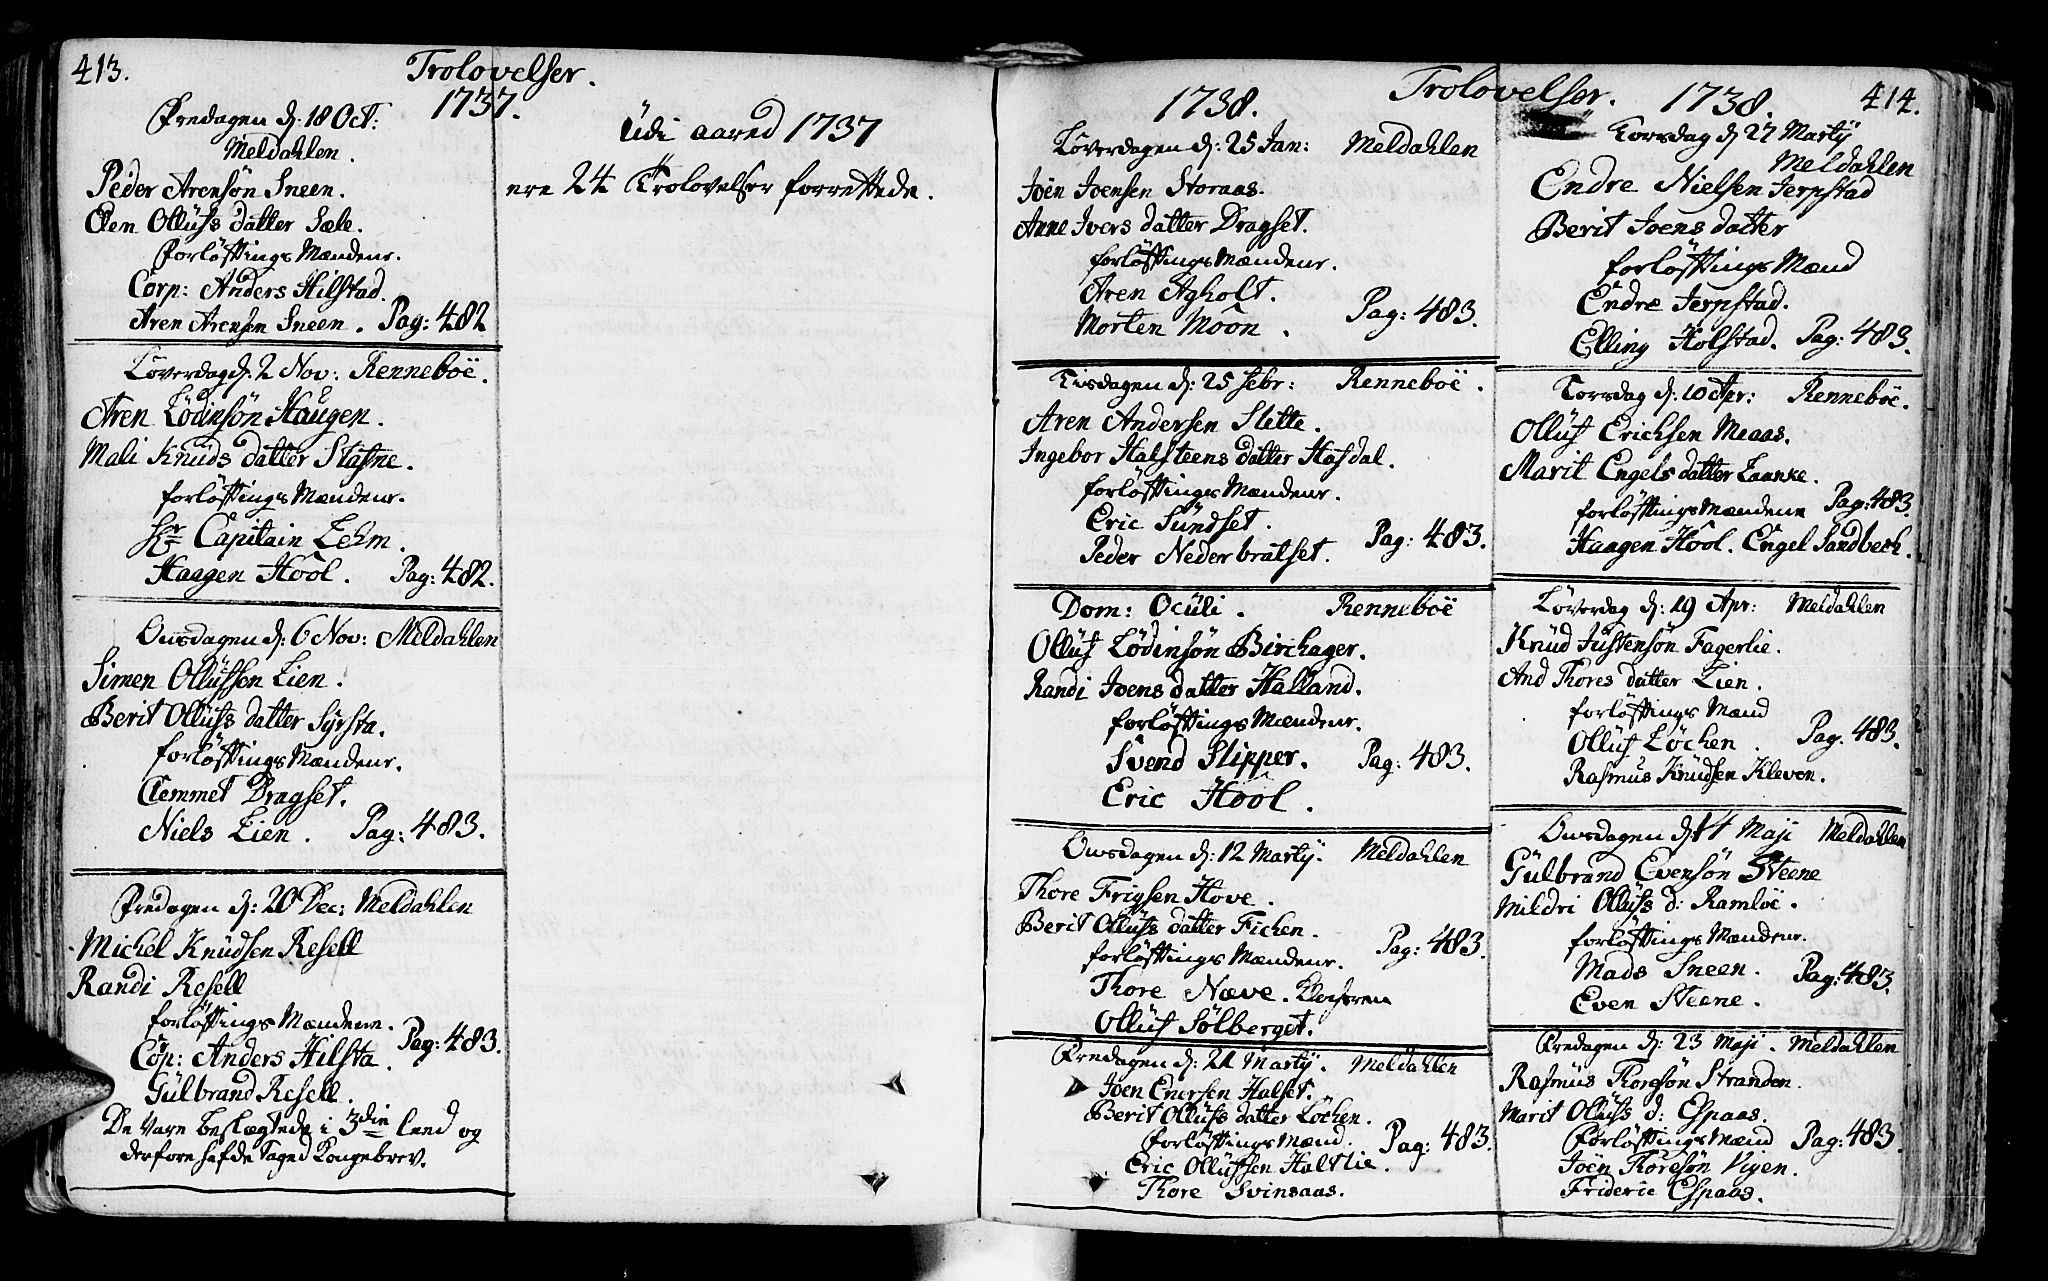 413.
Trolovelser.
1737.
Fredagen d: 18 Oct:
Meldahlen.
Peder Arensön Sneen.
Elen Ollufs datter Sæle.
forløftings Mændene.
Corp: Anders Hilstad.
Aren Arensen Sneen. Pag: 482
Löverdag d: 2 Nov: Renneboe.
Aren Lödinsön Haugen.
Mali Knuds datter Stafne.
forløftings Mændene.
Hr Capitain Lehm.
Haagen Hool. Pag: 482.
Onsdagen d: 6 Nov: Meldahlen
Simen Ollufsen Lien.
Berit Ollufs datter Syrsta.
forløftings Mændene.
Clemmet Dragset.
Niels Lien. Pag: 483.
Fredagen d: 20 Dec: Meldahlen
Michel Knudsen Resell
Randi Resell
forløftings Mændene.
Cop: Anders Hilsta. Pag: 483.
Gulbrand Resell.
De vare beslægtede i 3die leed og
derfore hafde taged Kongebrev.
Udi aared 1737
ere 24 Trolovelser forrettede.
Trolovelser.
414.
1738.
Löverdagen d: 25 Jan: Meldahlen
Joen Joensen Storaas.
Anne Ivers datter Dragset.
forløftings Mændene.
Aren Agholt.
Morten Moon. Pag: 483.
Tisdagen d: 25 febr: Renneboe.
Aren Andersen Slette.
Ingebor Halsteens datter Hosdal.
forløftings Mændene.
Eric Sundset.
Peder Nederbratset. Pag: 483.
Dom: Oculi. Renneboe
Olluf Lödinsön Birchager.
Randi Joens datter Halland.
forløftings Mændene.
Svend Slipper. Pag: 483.
Eric Hool.
Onsdagen d: 12 Martij. Meldahlen
Thore Frigsen Hove.
Berit Ollufs datter Fichen.
forløftings Mændene. Pag: 483.
Thore Næve. Klocheren
Olluf Sölberget.
Fredagen d: 21 Martij. Meldahlen
Joen Enersen Halset.
Berit Ollufs datter Löchen.
forløftings Mænd. Pag: 483.
Eric Ollufsen Haltlie.
Thore Svinsaas.
1738.
Torsdag d 27 Martij
Meldahlen
Endre Nielsen Jerpstad
Berit Joens datter
forløftings Mænd
Endre Jerpstad.
Elling Holstad. Pag: 483.
Torsdag d: 10 Apr: Renneboe.
Olluf Erichsen Meaas.
Marit Engels datter Laanke.
forløftings Mændene Pag: 483.
Haagen Hool. Engel Sandbech.
Löverdag d: 19 Apr: Meldahlen
Knud Justensön Fagerlie.
And Thores datter Lien.
forløftings Mænd
Olluf Löchen. Pag. 483.
Rasmus Knudsen Kleven.
Onsdagen d: 14 Maji Meldahlen
Gulbrand Evensön Steene
Mildri Ollufs d: Ramlöe.
forløftings Mændene.
Mads Sneen. Pag: 483.
Even Steene.
Fredagen d: 23 Maji. Meldahlen
Rasmus Thoresön Stranden.
Marit Ollufs d: Espaas.
forløftings Mænd Pag: 483.
Joen Thoresön Vigen.
Frideric Espaas.